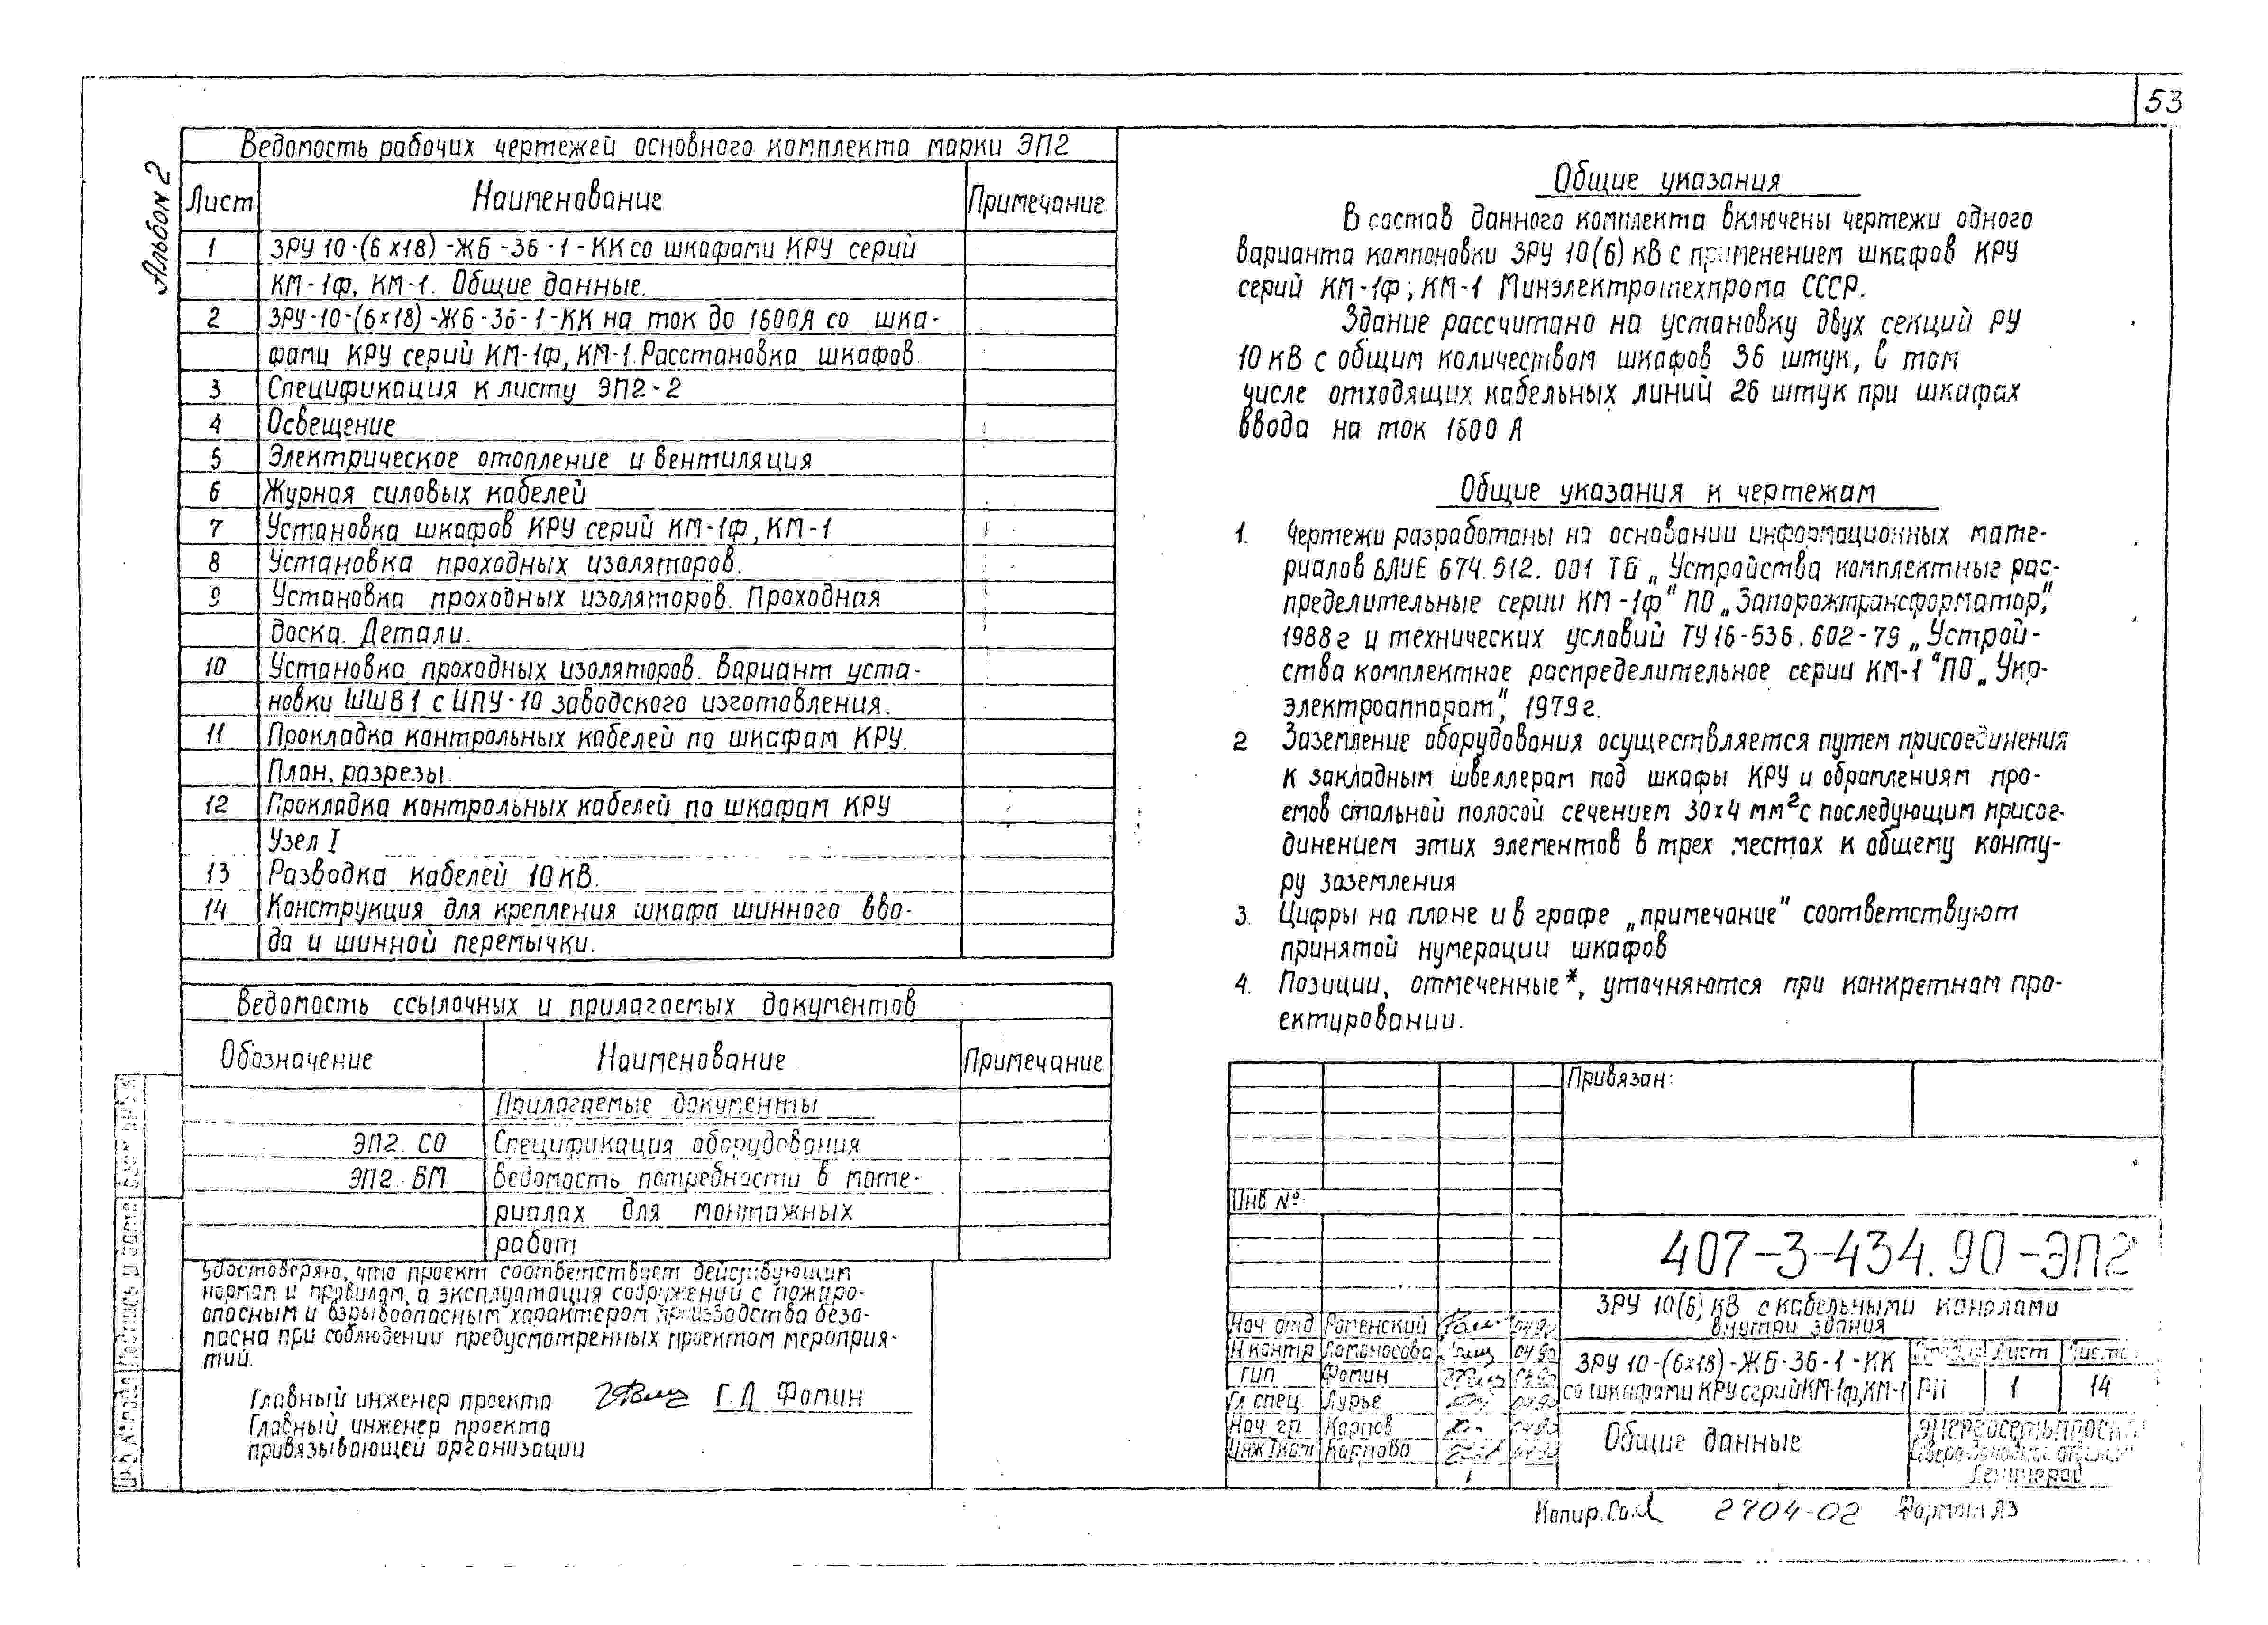 53
Альбом 2
Ведомость рабочих чертежей основного комплекта марки ЭП2
Лист Наименование Примечание
1 ЗРУ 10-(6х18)-ЖБ-36-1-КК со шкафами КРУ серий
КМ-1ф, КМ-1. Общие данные.
2 ЗРУ-10-(6х18)-ЖБ-36-1-КК на ток до 1600А со шка-
фами КРУ серий КМ-1ф, КМ-1. Расстановка шкафов.
3 Спецификация к листу ЭП2-2
4 Освещение
5 Электрическое отопление и вентиляция
6 Журнал силовых кабелей
7 Установка шкафов КРУ серий КМ-1ф, КМ-1
8 Установка проходных изоляторов.
9 Установка проходных изоляторов. Проходная
доска. Детали.
10 Установка проходных изоляторов. Вариант уста-
новки ШШВ1 с ИПУ-10 заводского изготовления.
11 Прокладка контрольных кабелей по шкафам КРУ.
План, разрезы.
12 Прокладка контрольных кабелей по шкафам КРУ
Узел I
13 Разводка кабелей 10 кВ.
14 Конструкция для крепления шкафа шинного вво-
да и шинной перемычки.
Ведомость ссылочных и прилагаемых документов
Обозначение Наименование Примечание
Прилагаемые документы
ЭП2. СО Спецификация оборудования
ЭП2. ВМ Ведомость потребности в мате-
риалах для монтажных
работ
Удостоверяю, что проект соответствует действующим
нормам и правилам, а эксплуатация сооружений с пожаро-
опасным и взрывоопасным характером производства безо-
пасна при соблюдении предусмотренных проектом мероприя-
тий.
Главный инженер проекта Г.Д Фомин
Главный инженер проекта
привязывающей организации
Общие указания
В состав данного комплекта включены чертежи одного
варианта компоновки ЗРУ 10(6) кВ с применением шкафов КРУ
серий КМ-1ф; КМ-1 Минэлектротехпрома СССР.
Здание рассчитано на установку двух секций РУ
10 кВ с общим количеством шкафов 36 штук, в том
числе отходящих кабельных линий 26 штук при шкафах
ввода на ток 1600 А
Общие указания к чертежам
1. Чертежи разработаны на основании информационных мате-
риалов ВЛИЕ 674.512.001 ТБ „Устройства комплектные рас-
пределительные серии КМ-1ф" ПО „Запорожтрансформатор",
1988г и технических условий ТУ16-536.602-79 „Устрой-
ства комплектное распределительное серии КМ-1" ПО „Укр-
электроаппарат", 1979г.
2 Заземление оборудования осуществляется путем присоединения
к закладным швеллерам под шкафы КРУ и обрамлениям про-
емов стальной полосой сечением 30х4 мм² с последующим присое-
динением этих элементов в трех местах к общему конту-
ру заземления
3. Цифры на плане и в графе „примечание" соответствуют
принятой нумерации шкафов
4. Позиции, отмеченные *, уточняются при конкретном про-
ектировании.
Привязан:
Инв №
407-3-434.90-ЭП2
ЗРУ 10(6) кВ с кабельными каналами
внутри здания
Нач отд. Роменский 04.90
Н контр Ломоносова 04.90
ГИП Фомин 04.90
Гл спец. Лурье 04.90
Нач. гр. Карпов 04.90
Инж Iкат Карпова 04.90
ЗРУ 10-(6х18)-ЖБ-36-1-КК
со шкафами КРУ серий КМ-1ф, КМ-1
Стадия Лист Листов
РП 1 14
Общие данные
ЭНЕРГОСЕТЬПРОЕКТ
Северо-Западное отделение
Ленинград
Копир. 2704-02 Формат А3